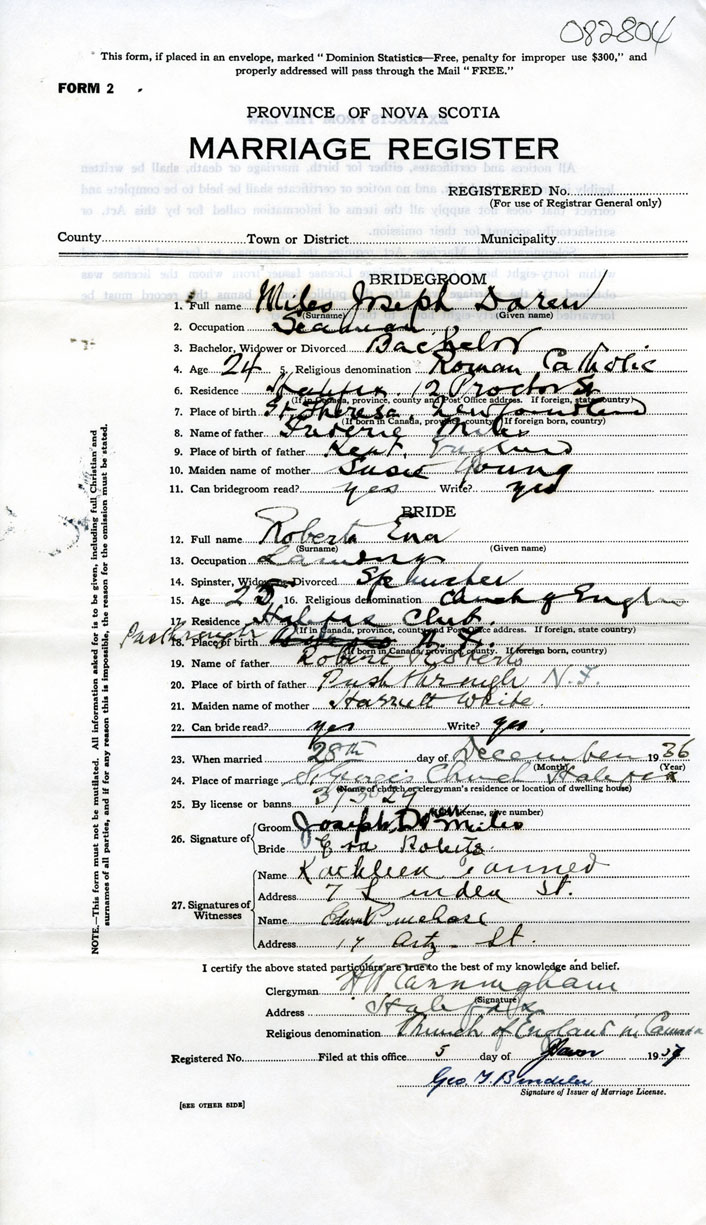 082804
This form, if placed in an envelope, marked "Dominion Statistics—Free, penalty for improper use $300," and
properly addressed will pass through the Mail "FREE."
FORM 2
PROVINCE OF NOVA SCOTIA
MARRIAGE REGISTER
REGISTERED No.
(For use of Registrar General only)
County Town or District Municipality
BRIDEGROOM
1. Full name Miles Joseph Darew
(Surname) (Given name)
2. Occupation Seaman
3. Bachelor, Widower or Divorced Bachelor
4. Age 24 5. Religious denomination Roman Catholic
6. Residence Halifax 12 Proctor St
(If in Canada, province, county and Post Office address. If foreign, state country)
7. Place of birth St. Theresa, Newfoundland
(If born in Canada, province, county. If foreign born, country)
8. Name of father Miles
9. Place of father Kent, England
10. Maiden name of mother Susie Young
11. Can bridegroom read? yes Write? yes
BRIDE
12. Full name Roberts Ena
(Surname) (Given name)
13. Occupation
14. Spinster, Widow or Divorced Spinster
15. Age 25 16. Religious denomination Church of Engl
17. Residence Halifax Club.
(If in Canada, province, county and Post Office address. If foreign, state country)
Pushthrough 18. Place of birth N. F.
(If born in Canada, province, county. If foreign born, country)
19. Name of father Robert
20. Place of birth of father Pushthrough N.F.
21. Maiden name of mother Harriett White
22. Can bride read? yes Write? yes.
23. When married 28th day of December 1936
(Month) (Year)
24. Place of marriage St Georges Church Halifax
(Name of church or clergyman's residence or location of dwelling house)
25. By license or banns 31329
(If license, give number)
26. Signature of Groom Joseph Miles
Bride Roberts
27. Signatures of Witnesses Name Kathleen
Address 7 Linden St.
Name
Address 17 Artz St.
I certify the above stated particulars are true to the best of my knowledge and belief.
Clergyman H W Cunningham
(Signature)
Address Halifax
Religious denomination Church of England in Canada
Registered No. Filed at this office 5 day of Jan 1937
Geo. T.
Signature of Issuer of Marriage License.
[SEE OTHER SIDE]
NOTE.—This form must not be mutilated. All information asked for is to be given, including full Christian and
surnames of all parties, and if for any reason this is impossible, the reason for the omission must be stated.